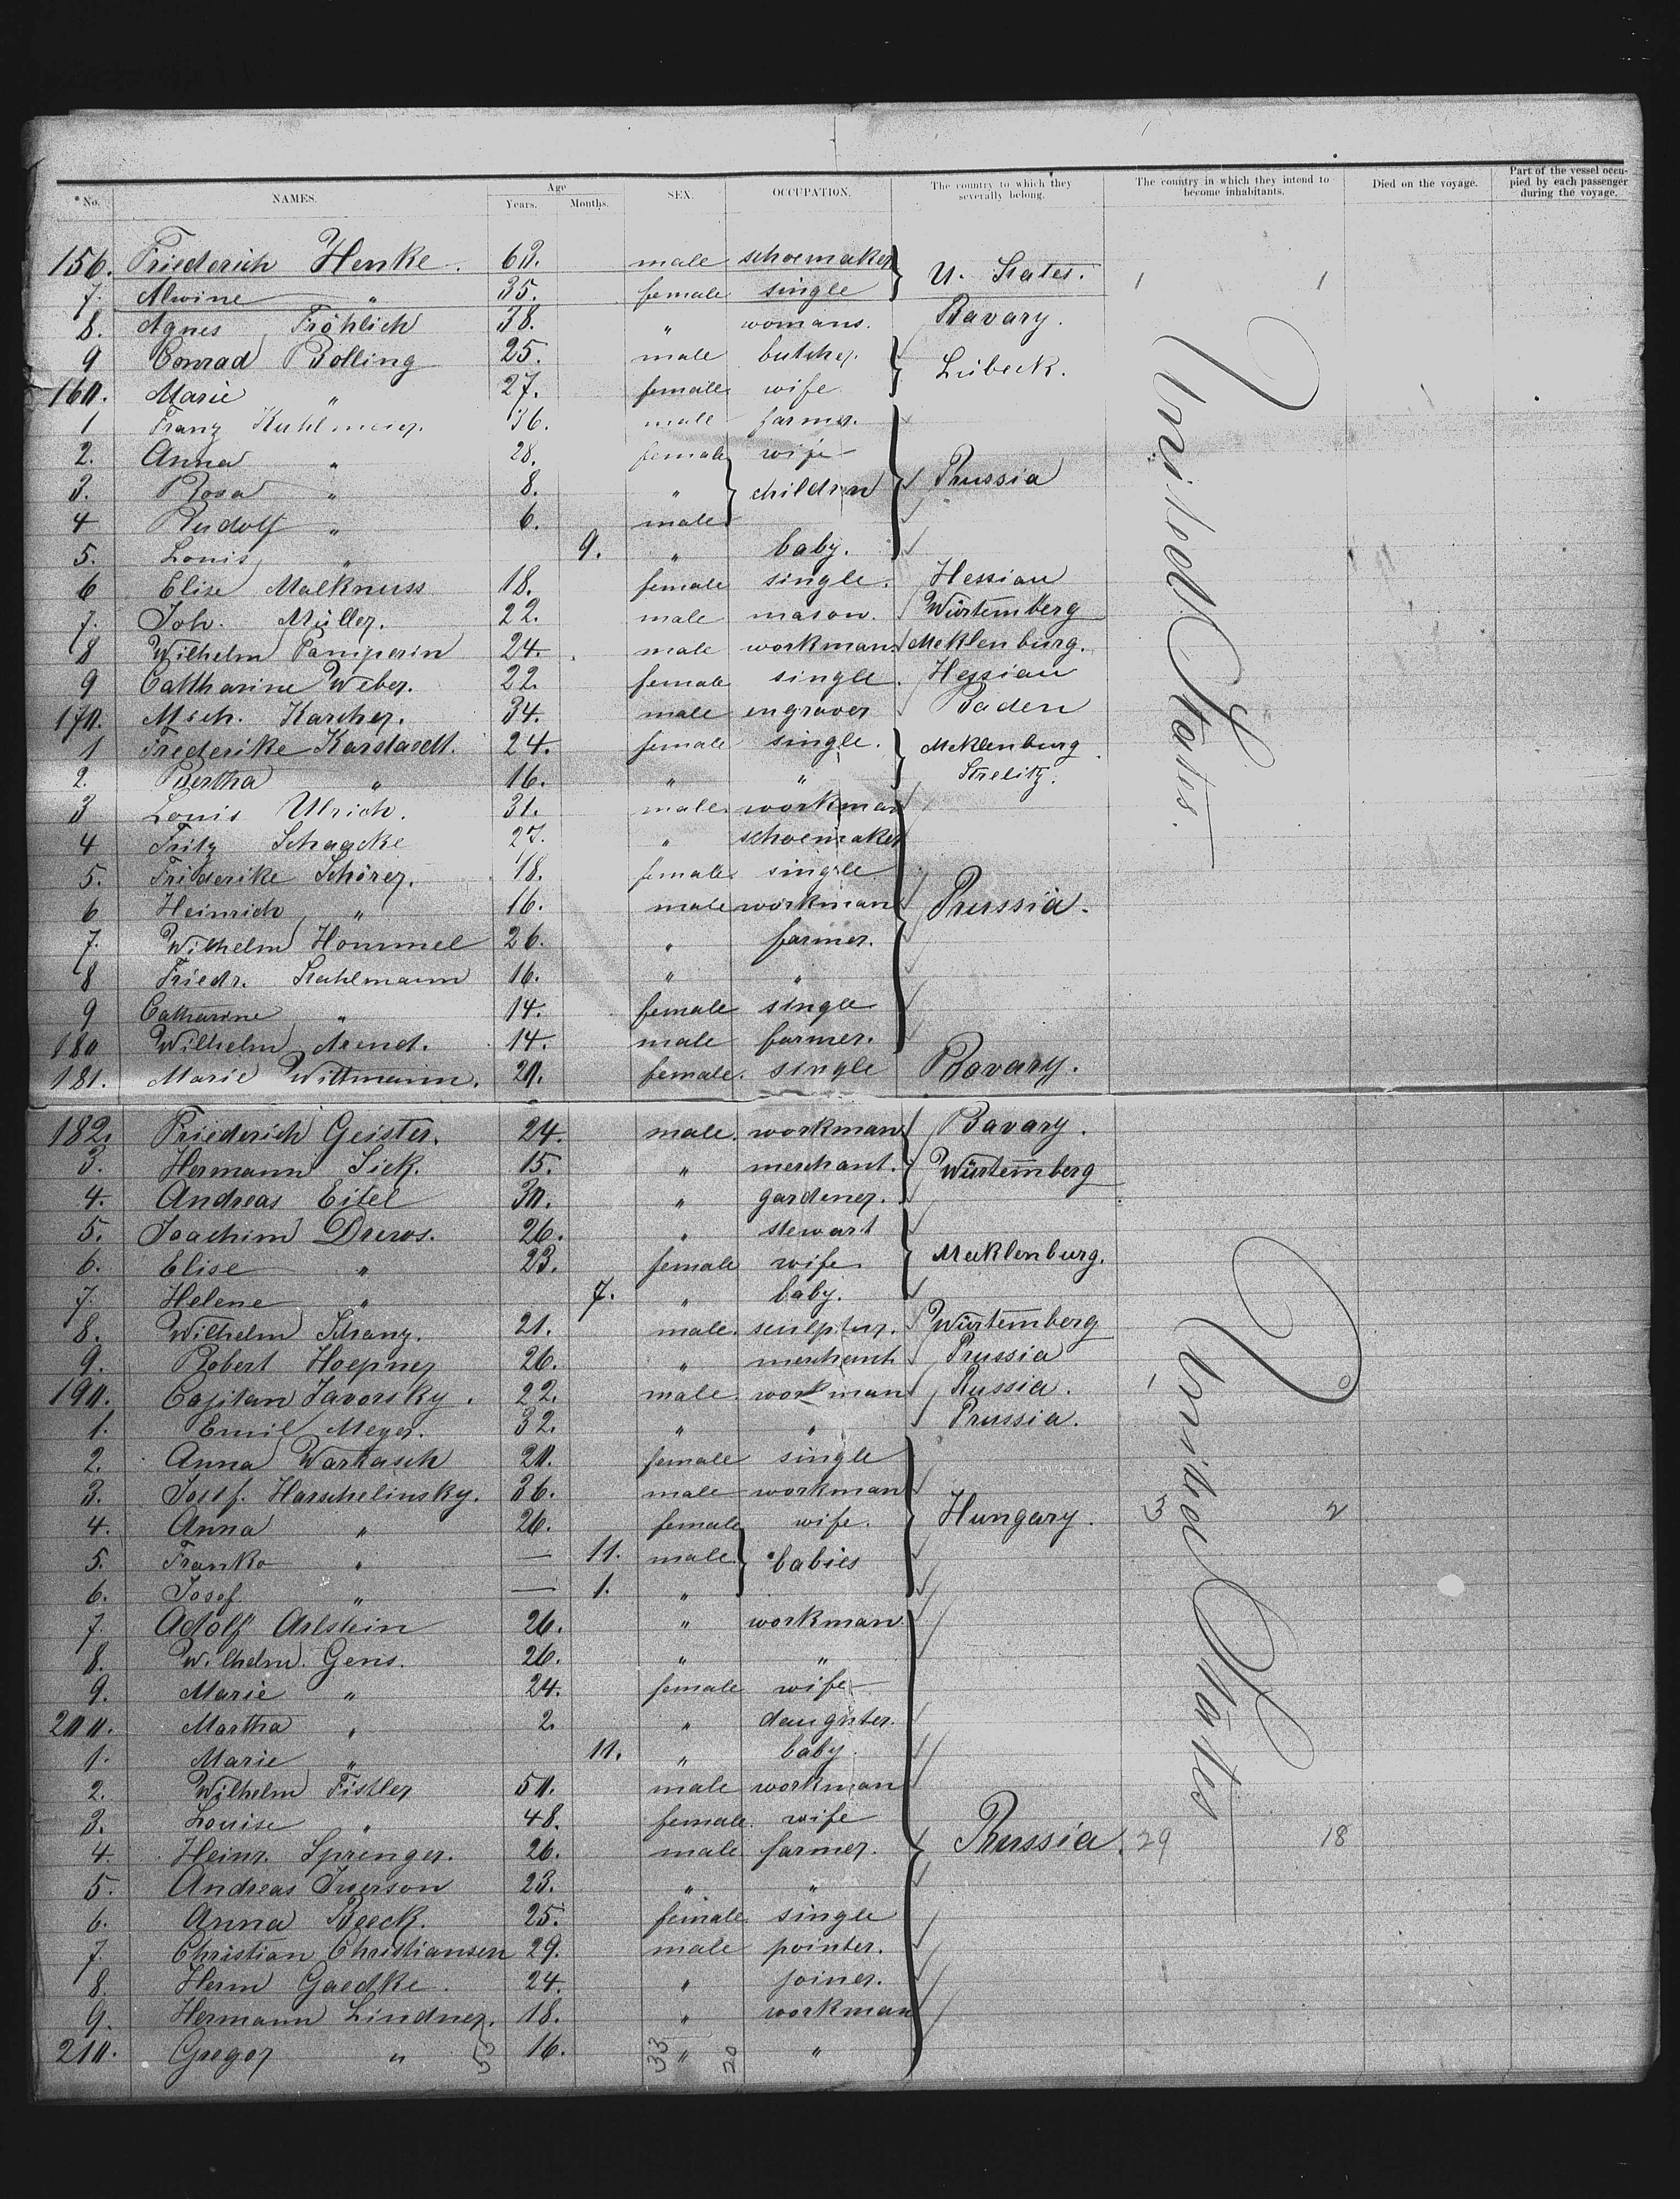 No. NAMES. Age Years. Months. SEX. OCCUPATION. The country to which they severally belong. The country in which they intend to become inhabitants. Died on the voyage. Part of the vessel occupied by each passenger during the voyage.
156. Friederich Henke. 60. male schoemaker U. States. 1 1
7. Alwine " 35. female single
8. Agnes Fröhlich 38. " womans. Bavary.
9 Conrad Bolling 25. male butcher. Lübeck.
160. Marie " 27. female wife
1 Franz Kuhlmeier. 36. male farmer.
2. Anna " 28. female wife
3. Rosa " 8. " children Prussia
4 Rudolf " 6. male
5. Louis " 9. " baby.
6 Elise Malknuss 18. female single. Hessian
7. Joh. Müller. 22. male mason. Würtemberg
8 Wilhelm Pamperin 24. male workman Meklenburg.
9 Catharine Weber. 22. female single. Hessian
170. Mich. Karcher. 34. male engraver Baden
1 Frederike Karstaedt. 24. female single. Meklenburg Strelitz.
2. Bertha " 16. " "
3 Louis Ulrich. 31. male workman
4 Fritz Schaacke 27. " schoemaker
5. Friederike Schörer. 18. female single
6 Heinrich " 16. male workman Prussia.
7. Wilhelm Hommel 26. " farmer.
8 Friedr. Stahlmann 16. " "
9 Catharine " 14. female single
180 Wilhelm Arend. 14. male farmer.
181. Marie Wittmann. 20. female. single Bavary.
United States.
182. Friederich Geister. 24. male. workman Bavary.
3. Hermann Sick. 15. " merchant. Würtemberg
4. Andreas Eitel 30. " gardener.
5. Joachim Drews. 26. " stewart
6. Elise " 23. female wife. Meklenburg.
7. Helene " 7. " baby.
8. Wilhelm Schanz. 21. male. sculptur. Würtemberg
9. Robert Hoepner 26. " merchant Prussia
190. Cajitan Javorsky. 22. male. workman Russia. 1 0
1. Emil Meyer. 32. " " Prussia.
2. Anna Warkasch 20. female single
3. Josef. Harschelinsky. 36. male workman
4. Anna " 26. female wife. Hungary. 3 2
5. Franko " — 11. male babies
6. Josef. " — 1. "
7. Adolf Arlstein 26. " workman
8. Wilhelm. Gens. 26. " "
9. Marie " 24. female wife
200. Martha " 2. " daughter.
1. Marie " 11. " baby.
2. Wilhelm Fistler 50. male workman
3. Louise " 48. female. wife
4. Heinr. Sprenger. 26. male farmer. Prussia. 29 18
5. Andreas Iwerson 23. " "
6. Anna Beeck. 25. female. single
7. Christian Christiansen 29. male pointer.
8. Herm Gaedke. 24. " joiner.
9. Hermann Lindner. 18. " workman
210. Gregor " 16. " "
53 33 20
United States